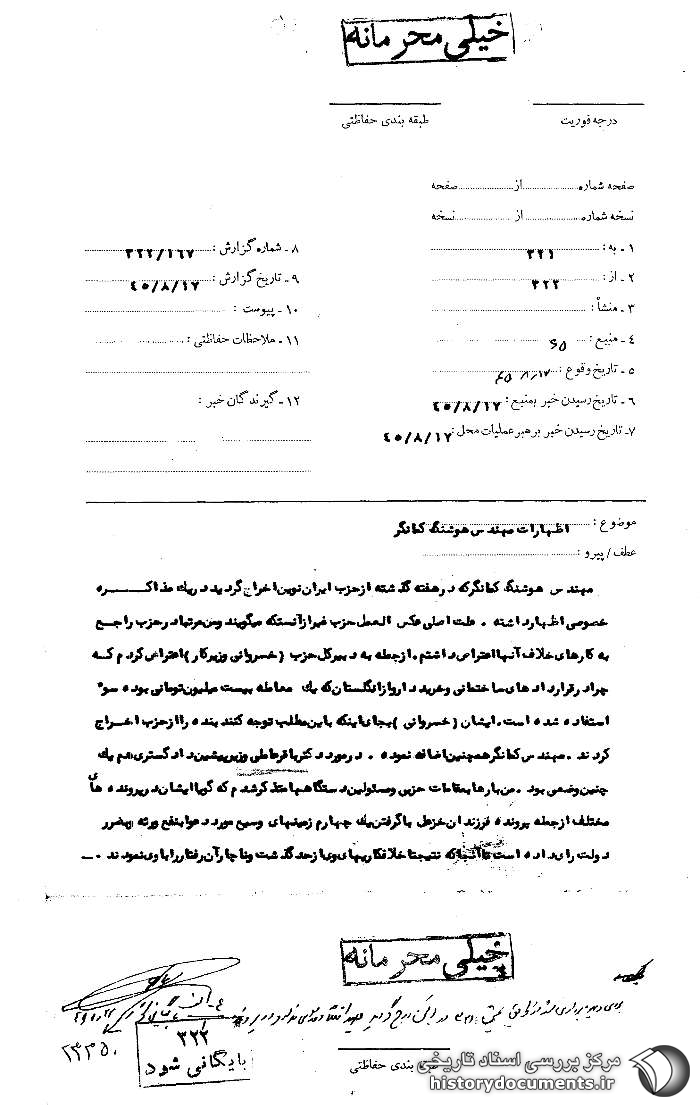 خیلی محرمانه
درجه فوریت
طبقه بندی حفاظتی
صفحه شماره از صفحه
نسخه شماره از نسخه
۱ـ به : ۳۲۱
۸ـ شماره گزارش : ۳۲۲/۱۶۷
۲ـ از : ۳۲۲
۹ـ تاریخ گزارش : ۴۵/۸/۱۷
۳ـ منشأ :
۱۰ـ پیوست :
۴ـ منبع :
۱۱ـ ملاحظات حفاظتی :
۵ـ تاریخ وقوع : ۴۵/۸/۱۷
۶ـ تاریخ رسیدن خبر بمنبع : ۴۵/۸/۱۷
۱۲ـ گیرندگان خبر :
۷ـ تاریخ رسیدن خبر برهبر عملیات محل : ۴۵/۸/۱۷
موضوع : اظهارات مهندس هوشنگ کمانگر
عطف/پیرو :
مهندس هوشنگ کمانگر که در هفته گذشته از حزب ایران نوین اخراج گردید در یک مذاکره
خصوصی اظهار داشته . علت اصلی عکس العمل حزب غیر از آنستکه میگویند و من مرتبا در حزب راجع
به کارهای خلاف آنها اعتراض داشتم . از جمله به دبیر کل حزب (خسروانی وزیر کار) اعتراض کردم که
چرا در قرارداد های ساختمانی و خرید دارو از انگلستان که یک معامله بیست میلیون تومانی بوده سوء
استفاده شده است . ایشان (خسروانی) بجای اینکه باین مطلب توجه کنند بنده را از حزب اخراج
کردند . مهندس کمانگر همچنین اضافه نموده . در مورد دکتر باقر عاملی وزیر پیشین دادگستری هم یک
چنین وضعی بود . من بارها بمقامات حزبی و مسئولین دستگاهها متذکر شدم که گویا ایشان در پرونده های
مختلف از جمله پرونده فرزندان خزعل با گرفتن یک چهارم زمینهای وسیع مورد دعوا بنفع ورثه و بضرر
دولت رای داده است تا آنجا که نتیجتا خلافکاریهای وی از حد گذشت و ناچار آن رفتار را با وی نمودند .
خیلی محرمانه
۳۲۲
بایگانی شود
طبقه بندی حفاظتی
مرکز بررسی اسناد تاریخی
historydocuments.ir